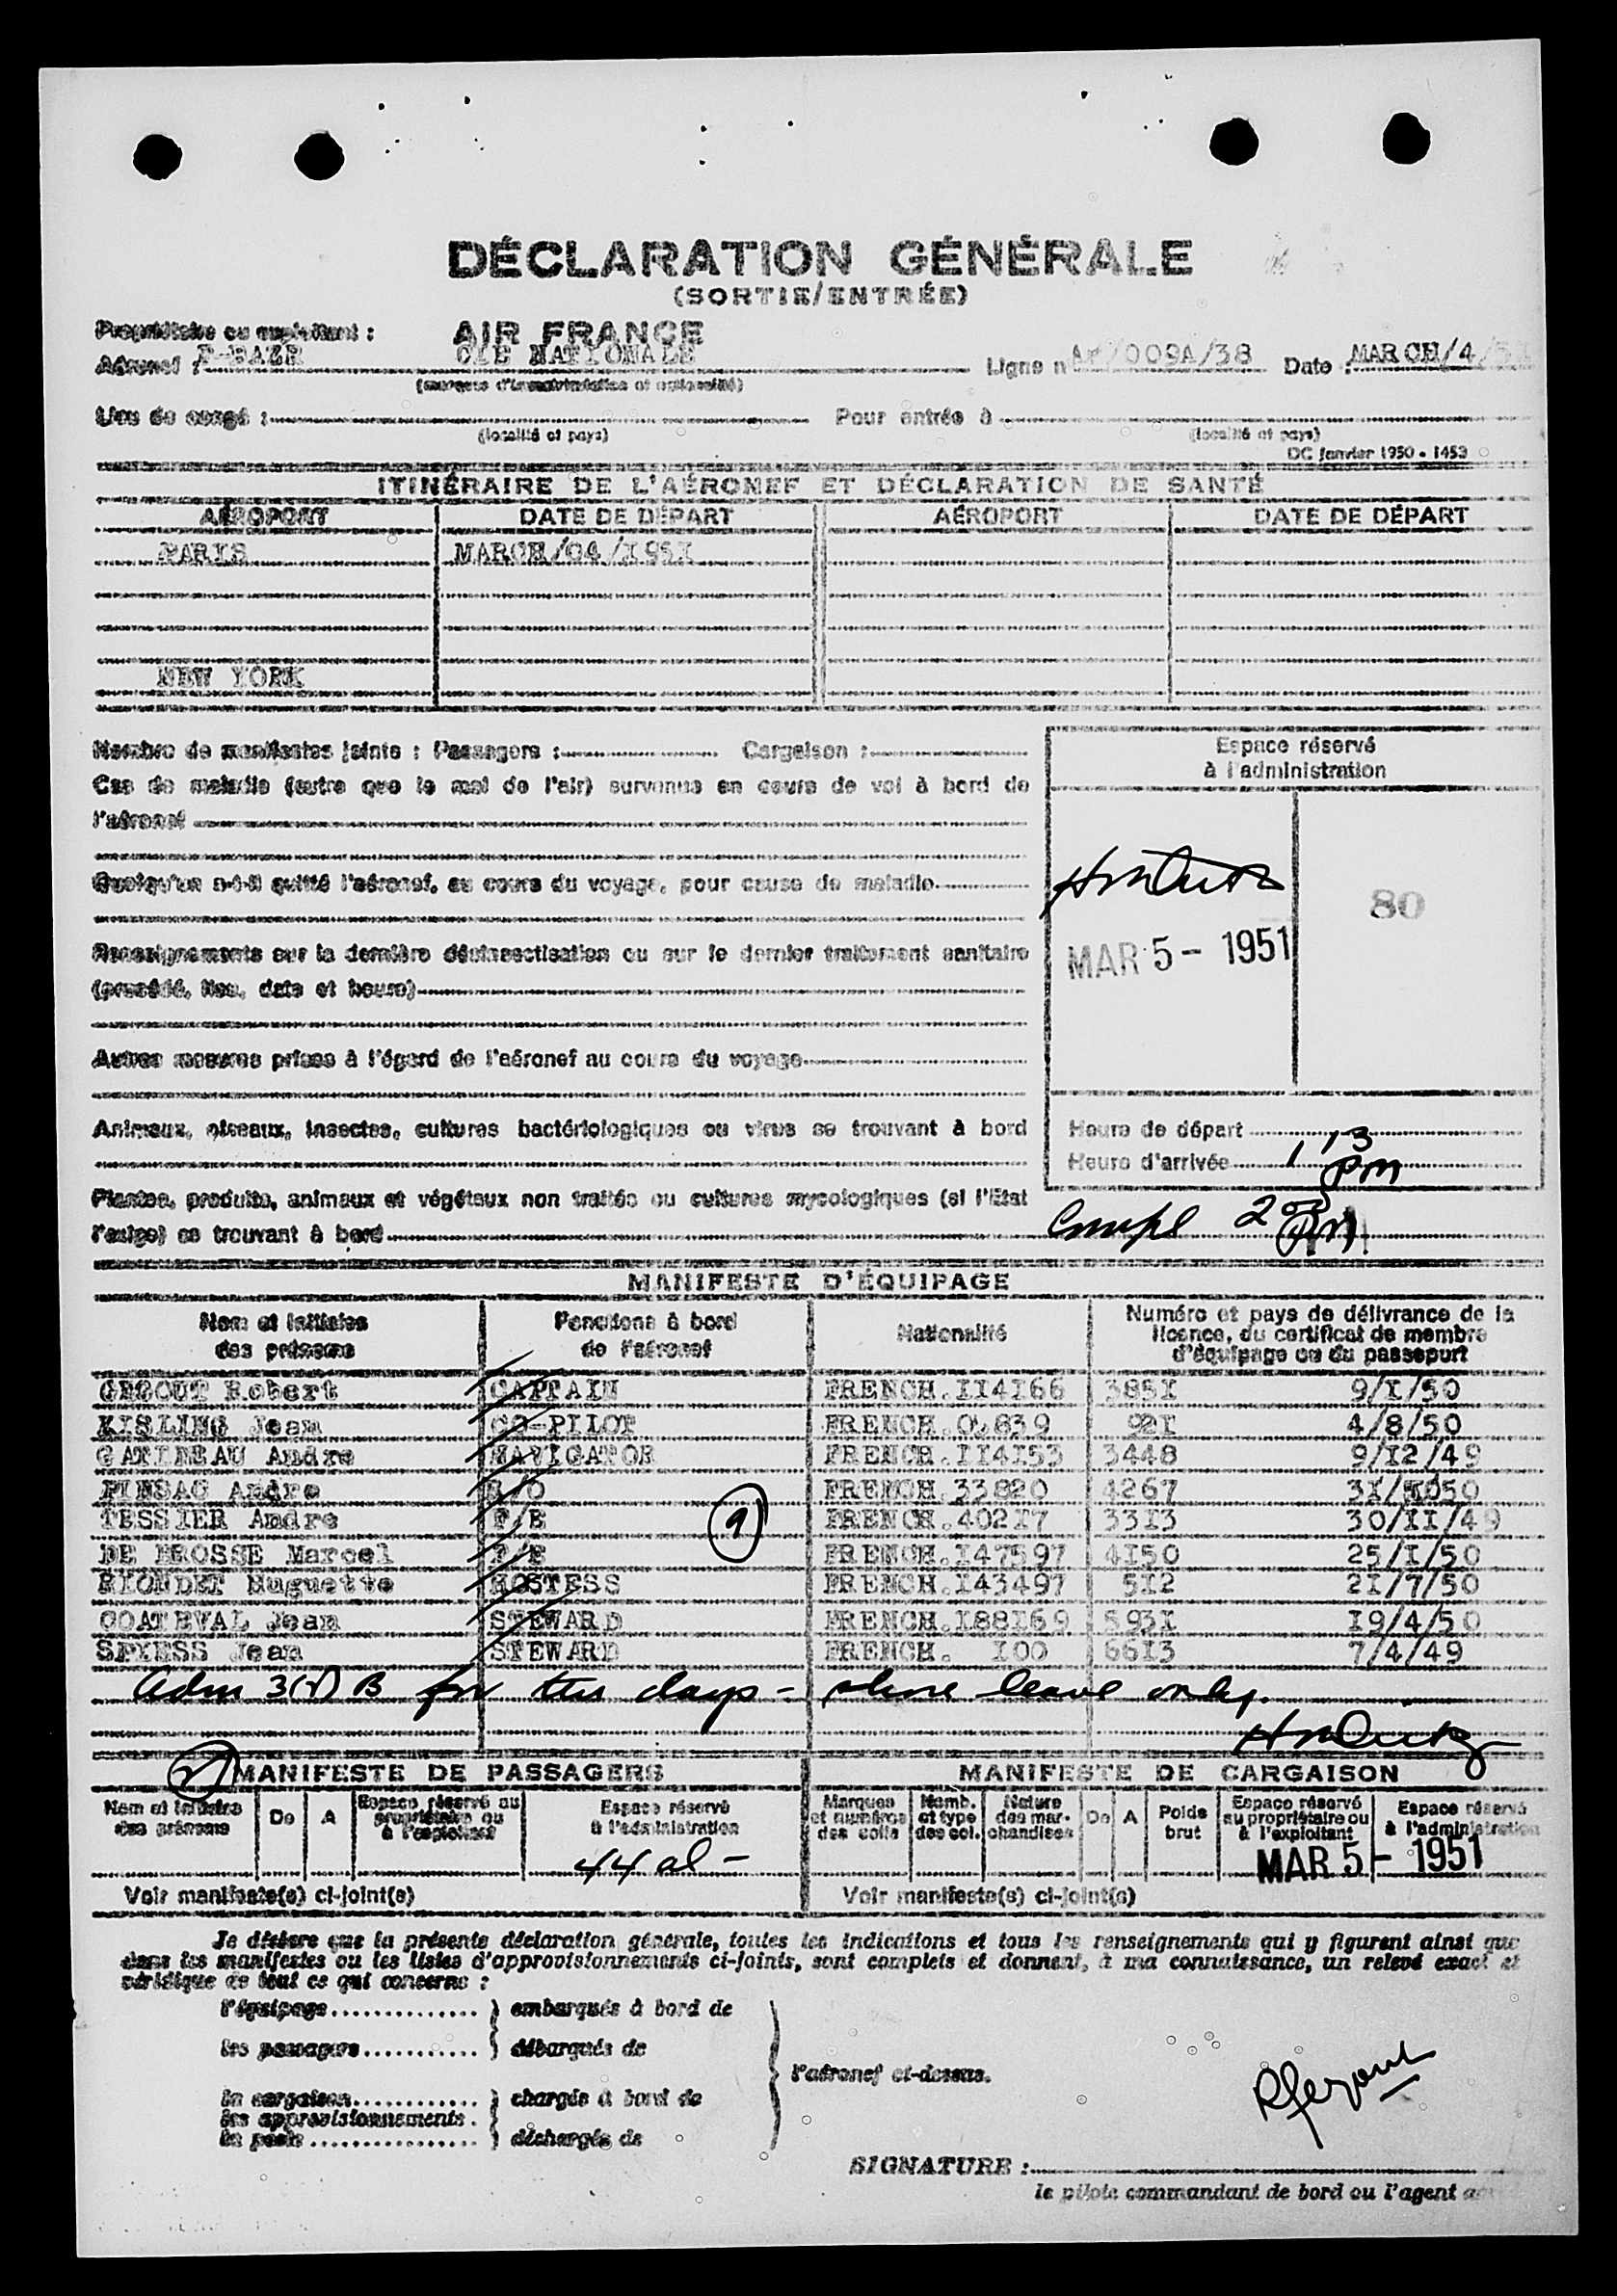 DÉCLARATION GÉNÉRALE
(SORTIE/ENTRÉE)
Propriétaire ou exploitant : AIR FRANCE
Aéronef : F-BAZR CIE NATIONALE Ligne n° AF/009A/38 Date : MARCH/4/51
(marques d'immatriculation et nationalité)
Lieu de congé : Pour entrée à
(localité et pays) (localité et pays)
DC Janvier 1950 - 1453
ITINÉRAIRE DE L'AÉRONEF ET DÉCLARATION DE SANTÉ
AÉROPORT DATE DE DÉPART AÉROPORT DATE DE DÉPART
PARIS MARCH/04/1951
NEW YORK
Nombre de manifestes joints : Passagers : Cargaison :
Espace réservé
à l'administration
Cas de maladie (autre que le mal de l'air) survenus en cours de vol à bord de
l'aéronef
Quelqu'un a-t-il quitté l'aéronef, au cours du voyage, pour cause de maladie
80
MAR 5 - 1951
Renseignements sur la dernière désinsectisation ou sur le dernier traitement sanitaire
(procédé, lieu, date et heure)
Autres mesures prises à l'égard de l'aéronef au cours du voyage
Animaux, oiseaux, insectes, cultures bactériologiques ou virus se trouvant à bord
Heure de départ
Heure d'arrivée 1 13 pm
Plantes, produits, animaux et végétaux non traités ou cultures mycologiques (si l'Etat
l'exige) se trouvant à bord
Compl 2 05 pm
MANIFESTE D'ÉQUIPAGE
Nom et initiales des prénoms Fonctions à bord de l'aéronef Nationalité Numéro et pays de délivrance de la licence, du certificat de membre d'équipage ou du passeport
GEGOUT Robert CAPTAIN FRENCH.114166 3851 9/1/50
KISLING Jean CO-PILOT FRENCH.0.839 921 4/8/50
GATINEAU Andre NAVIGATOR FRENCH.114153 3448 9/12/49
PINSAC Andre R/O FRENCH.33820 4267 31/ 50
TESSIER Andre F/E 9 FRENCH.40217 3313 30/11/49
DE BROSSE Marcel F/E FRENCH.147597 4150 25/1/50
RIONDET Huguette HOSTESS FRENCH.143497 512 21/7/50
COATEVAL Jean STEWARD FRENCH.188169 5931 19/4/50
SPIESS Jean STEWARD FRENCH. 100 6613 7/4/49
Adm 3(5) B for ten days - shore leave only.
MANIFESTE DE PASSAGERS MANIFESTE DE CARGAISON
Nom et initiales des prénoms De A Espace réservé au propriétaire ou à l'exploitant Espace réservé à l'administration Marques et numéros des colis Nomb. et type des col. Nature des marchandises De A Poids brut Espace réservé au propriétaire ou à l'exploitant Espace réservé à l'administration
44 al - MAR 5 - 1951
Voir manifeste(s) ci-joint(s) Voir manifeste(s) ci-joint(s)
Je déclare que la présente déclaration générale, toutes les indications et tous les renseignements qui y figurent ainsi que
dans les manifestes ou les listes d'approvisionnements ci-joints, sont complets et donnent, à ma connaissance, un relevé exact et
véridique de tout ce qui concerne :
l'équipage............... } embarqués à bord de
les passagers........... } débarqués de
l'aéronef ci-dessus.
la cargaison............. } chargés à bord de
les approvisionnements .
la poste................. } déchargés de
SIGNATURE :
le pilote commandant de bord ou l'agent